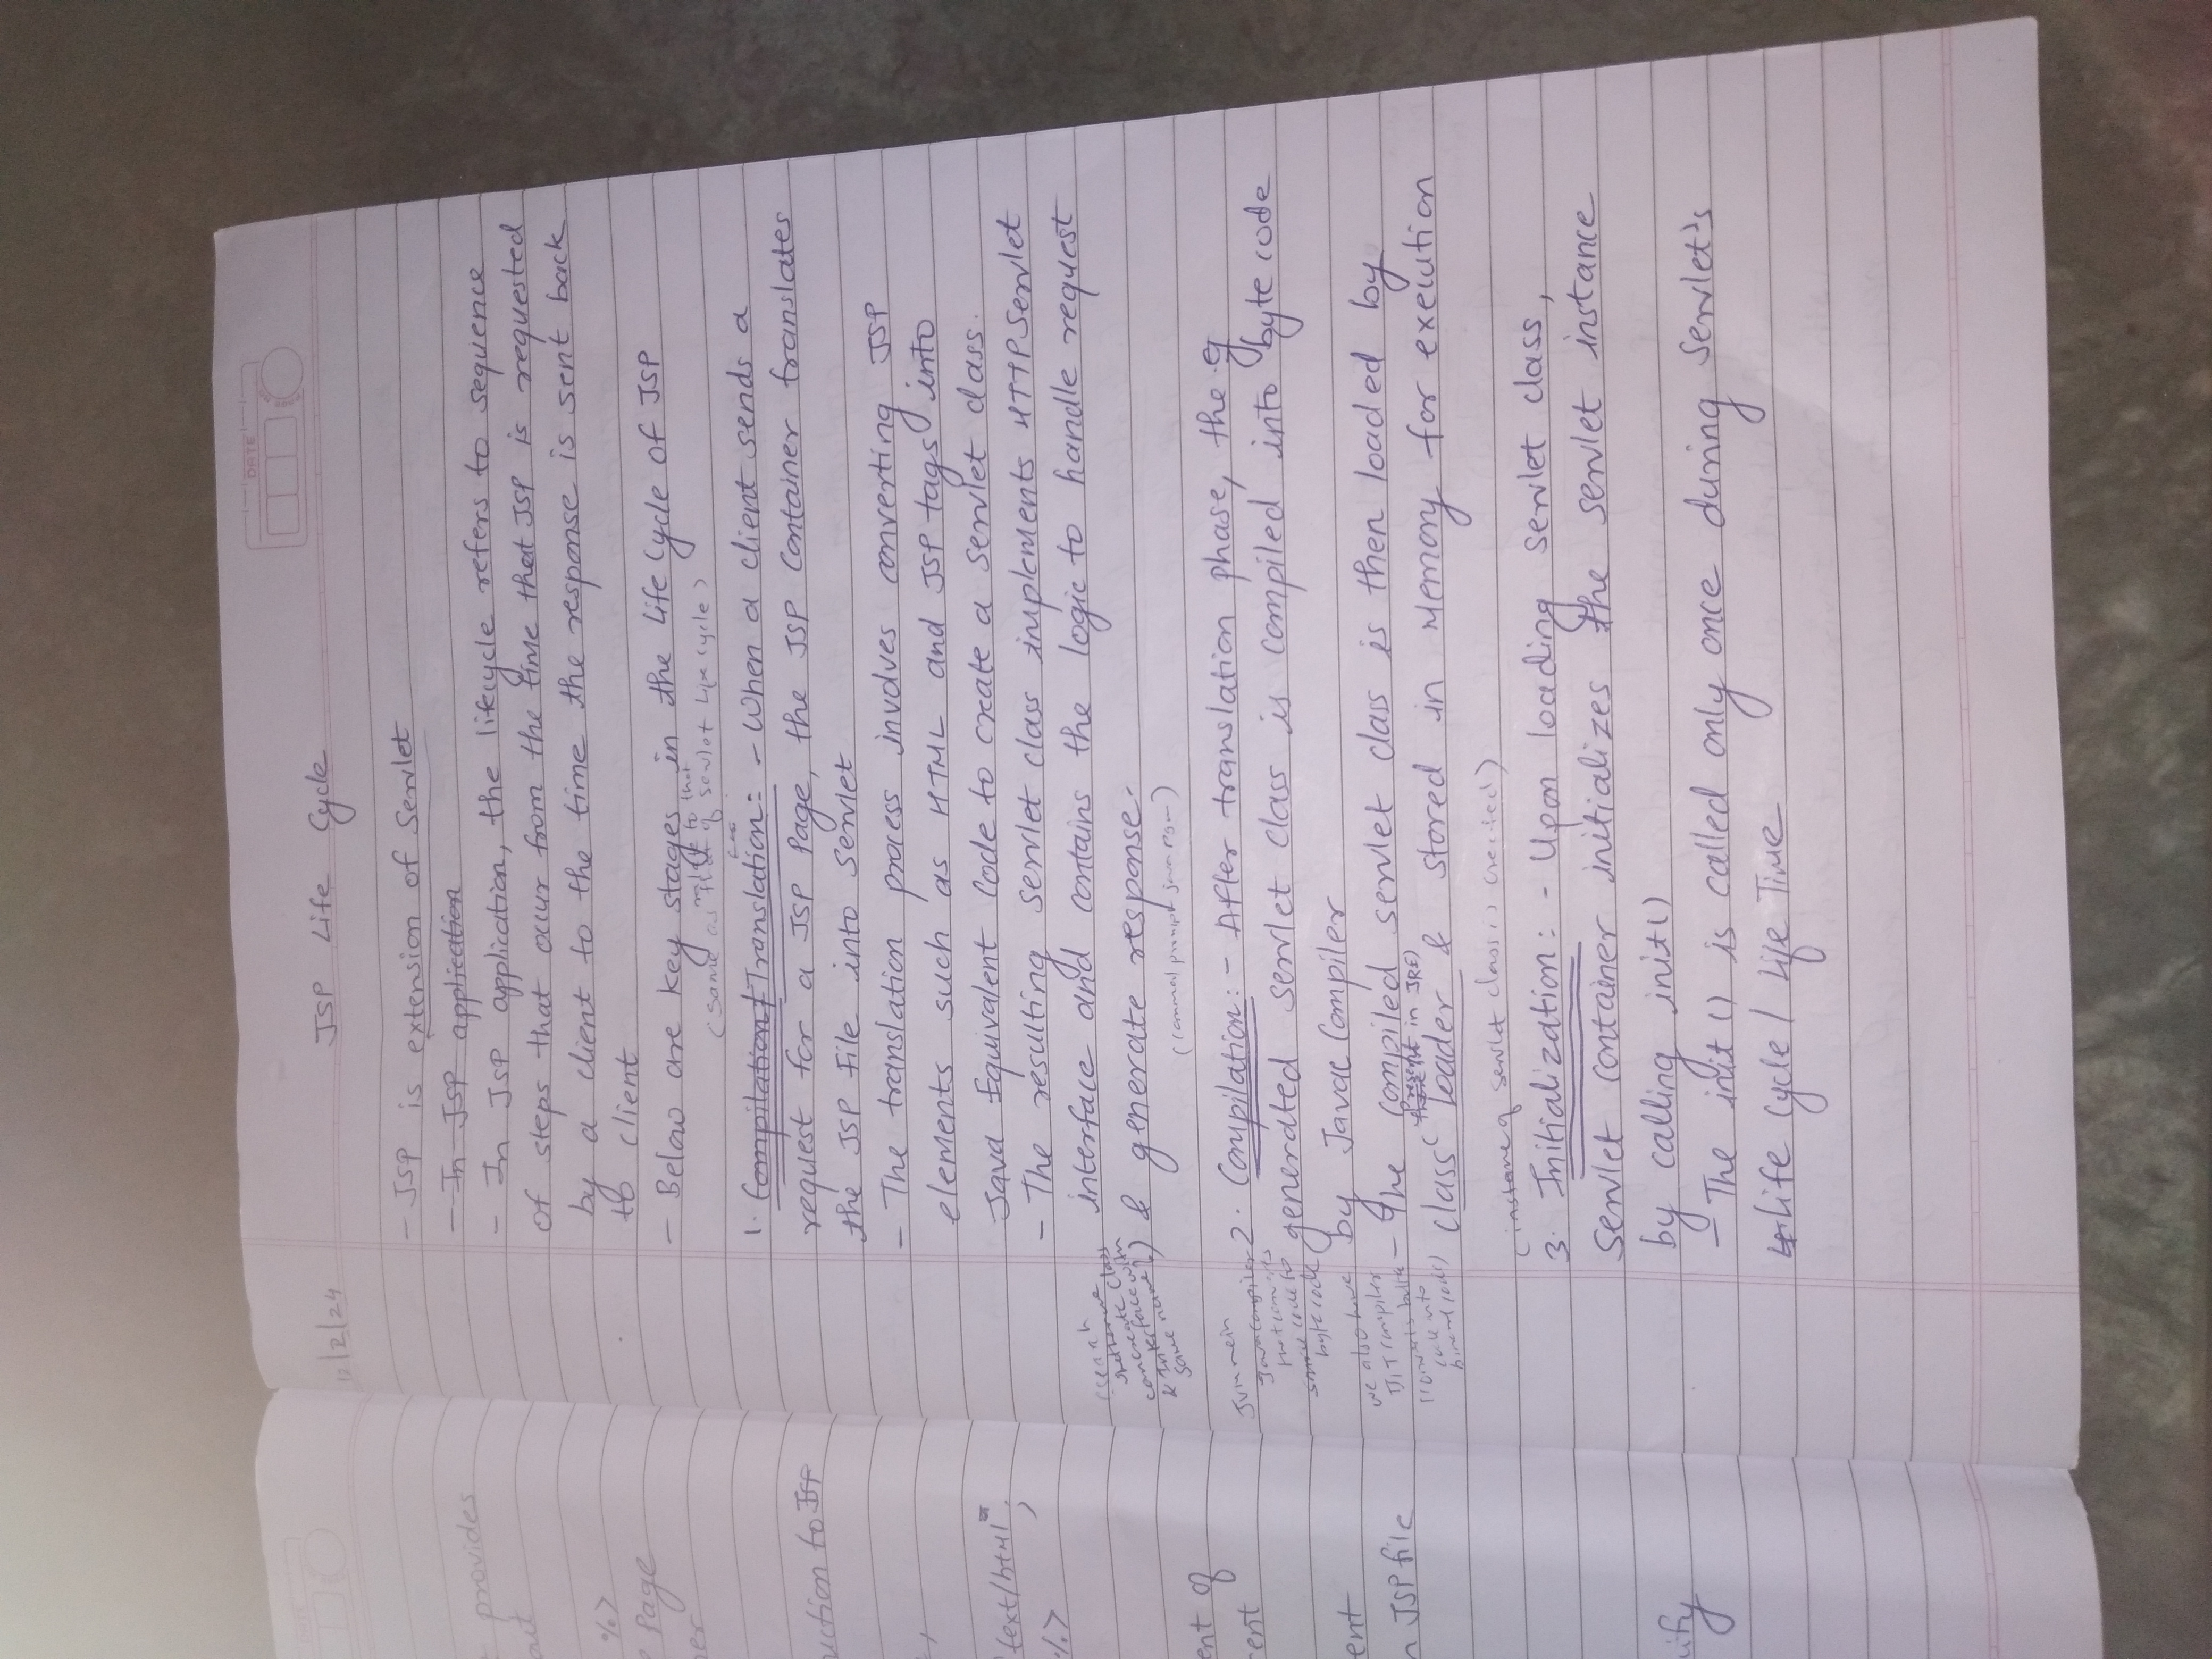 provides
out
%>
Page
uction to JSP
text/html";
%>
ent of
ent
n JSP file
ify
DATE
12/2/24
JSP Life Cycle
- JSP is extension of Servlet
- In JSP application
- In JSP application, the lifecycle refers to sequence
of steps that occur from the time that JSP is requested
by a client to the time the response is sent back
to client
- Below are key stages in the Life Cycle of JSP
to that
(Same as that of Servlet Life Cycle)
1. Compilation / Translation: - When a client sends a
request for a JSP Page, the JSP Container translates
the JSP File into Servlet
- The translation process involves converting JSP
elements such as HTML and JSP tags into
Java Equivalent Code to create a servlet class.
- The resulting servlet class implements HTTPServlet
interface and contains the logic to handle request
concreate Class
& Interface with
same name?)
& generate response.
(command prompt java pgm)
2. Compilation: - After translation phase, the
generated servlet class is compiled into byte code
by Javac Compiler
JVM mein
Java Compiler
that converts
source code to
byte code
we also have
JIT compiler
- The compiled servlet class is then loaded by
(Present in JRE)
class loader & stored in Memory for execution
(instance of servlet class is created)
3. Initialization: - Upon loading servlet class,
Servlet container initializes the servlet instance
by calling init()
- The init() is called only once during Servlet's
Life Cycle / Life Time